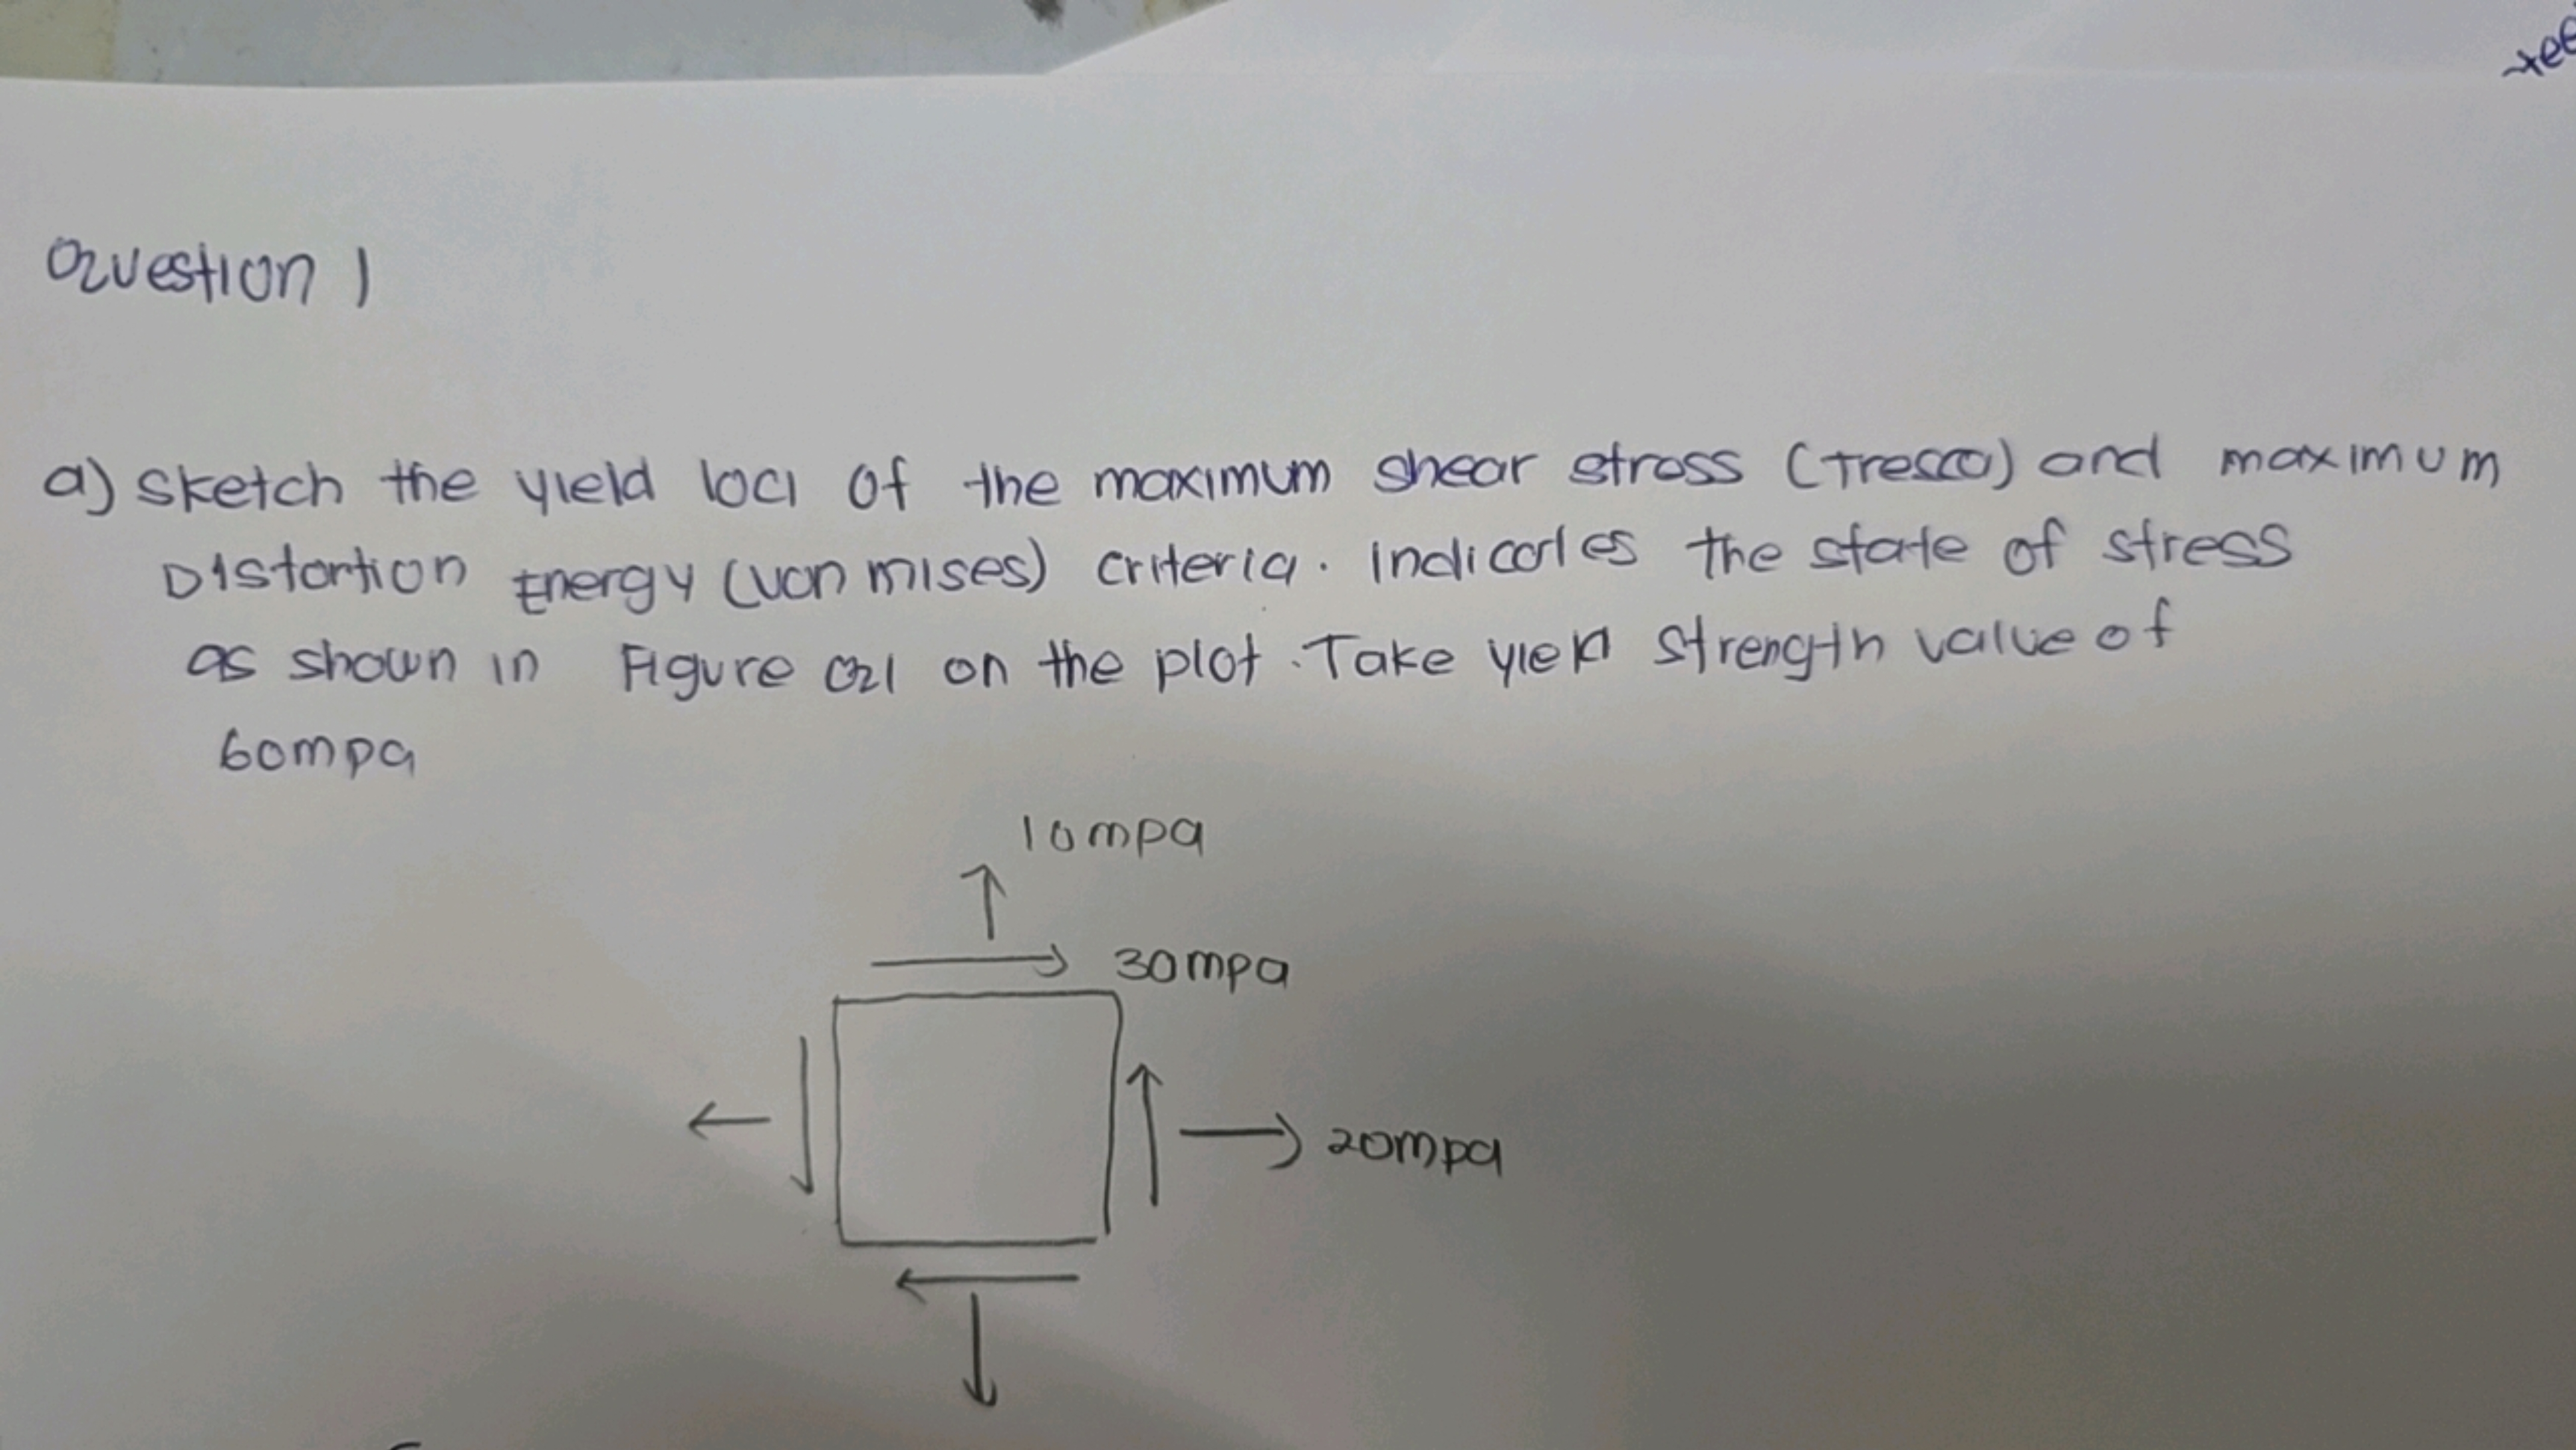 Question 1
a) Sketch the yield loci of the maximum shear stress (Tresca) and maximum
Distortion Energy (von mises) criteria. Indicates the state of stress
as shown in Figure Q1 on the plot. Take yield strength value of
60mpa
10mpa
30mpa
20mpa